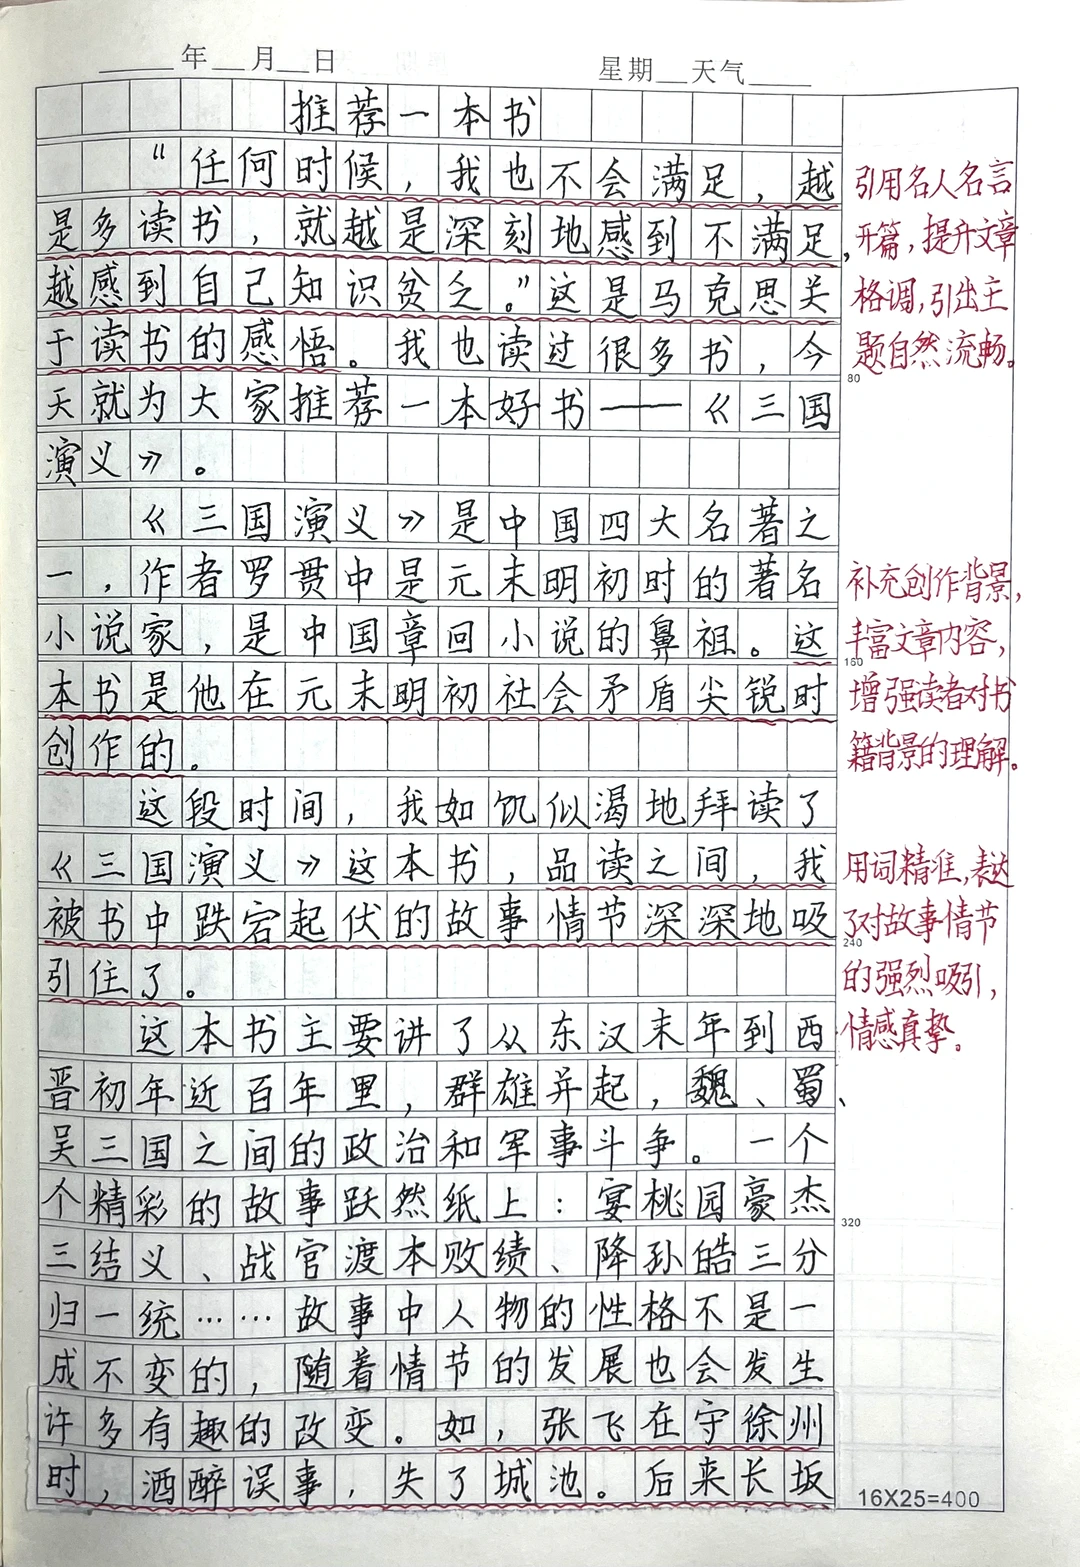 ____年__月__日 星期__天气____
推荐一本书
“任何时候，我也不会满足，越
是多读书，就越是深刻地感到不满足，
越感到自己知识贫乏。”这是马克思关
于读书的感悟。我也读过很多书，今
天就为大家推荐一本好书——《三国
演义》。
《三国演义》是中国四大名著之
一，作者罗贯中是元末明初时的著名
小说家，是中国章回小说的鼻祖。这
本书是他在元末明初社会矛盾尖锐时
创作的。
这段时间，我如饥似渴地拜读了
《三国演义》这本书，品读之间，我
被书中跌宕起伏的故事情节深深地吸
引住了。
这本书主要讲了从东汉末年到西
晋初年近百年里，群雄并起，魏、蜀、
吴三国之间的政治和军事斗争。一个
个精彩的故事跃然纸上：宴桃园豪杰
三结义、战官渡本败绩、降孙皓三分
归一统……故事中人物的性格不是一
成不变的，随着情节的发展也会发生
许多有趣的改变。如，张飞在守徐州
时，酒醉误事，失了城池。后来长坂
引用名人名言
开篇，提升文章
格调，引出主
题自然流畅。
80
补充创作背景，
丰富文章内容，
160
增强读者对书
籍背景的理解。
用词精准，表达
了对故事情节
240
的强烈吸引，
情感真挚。
320
16X25=400